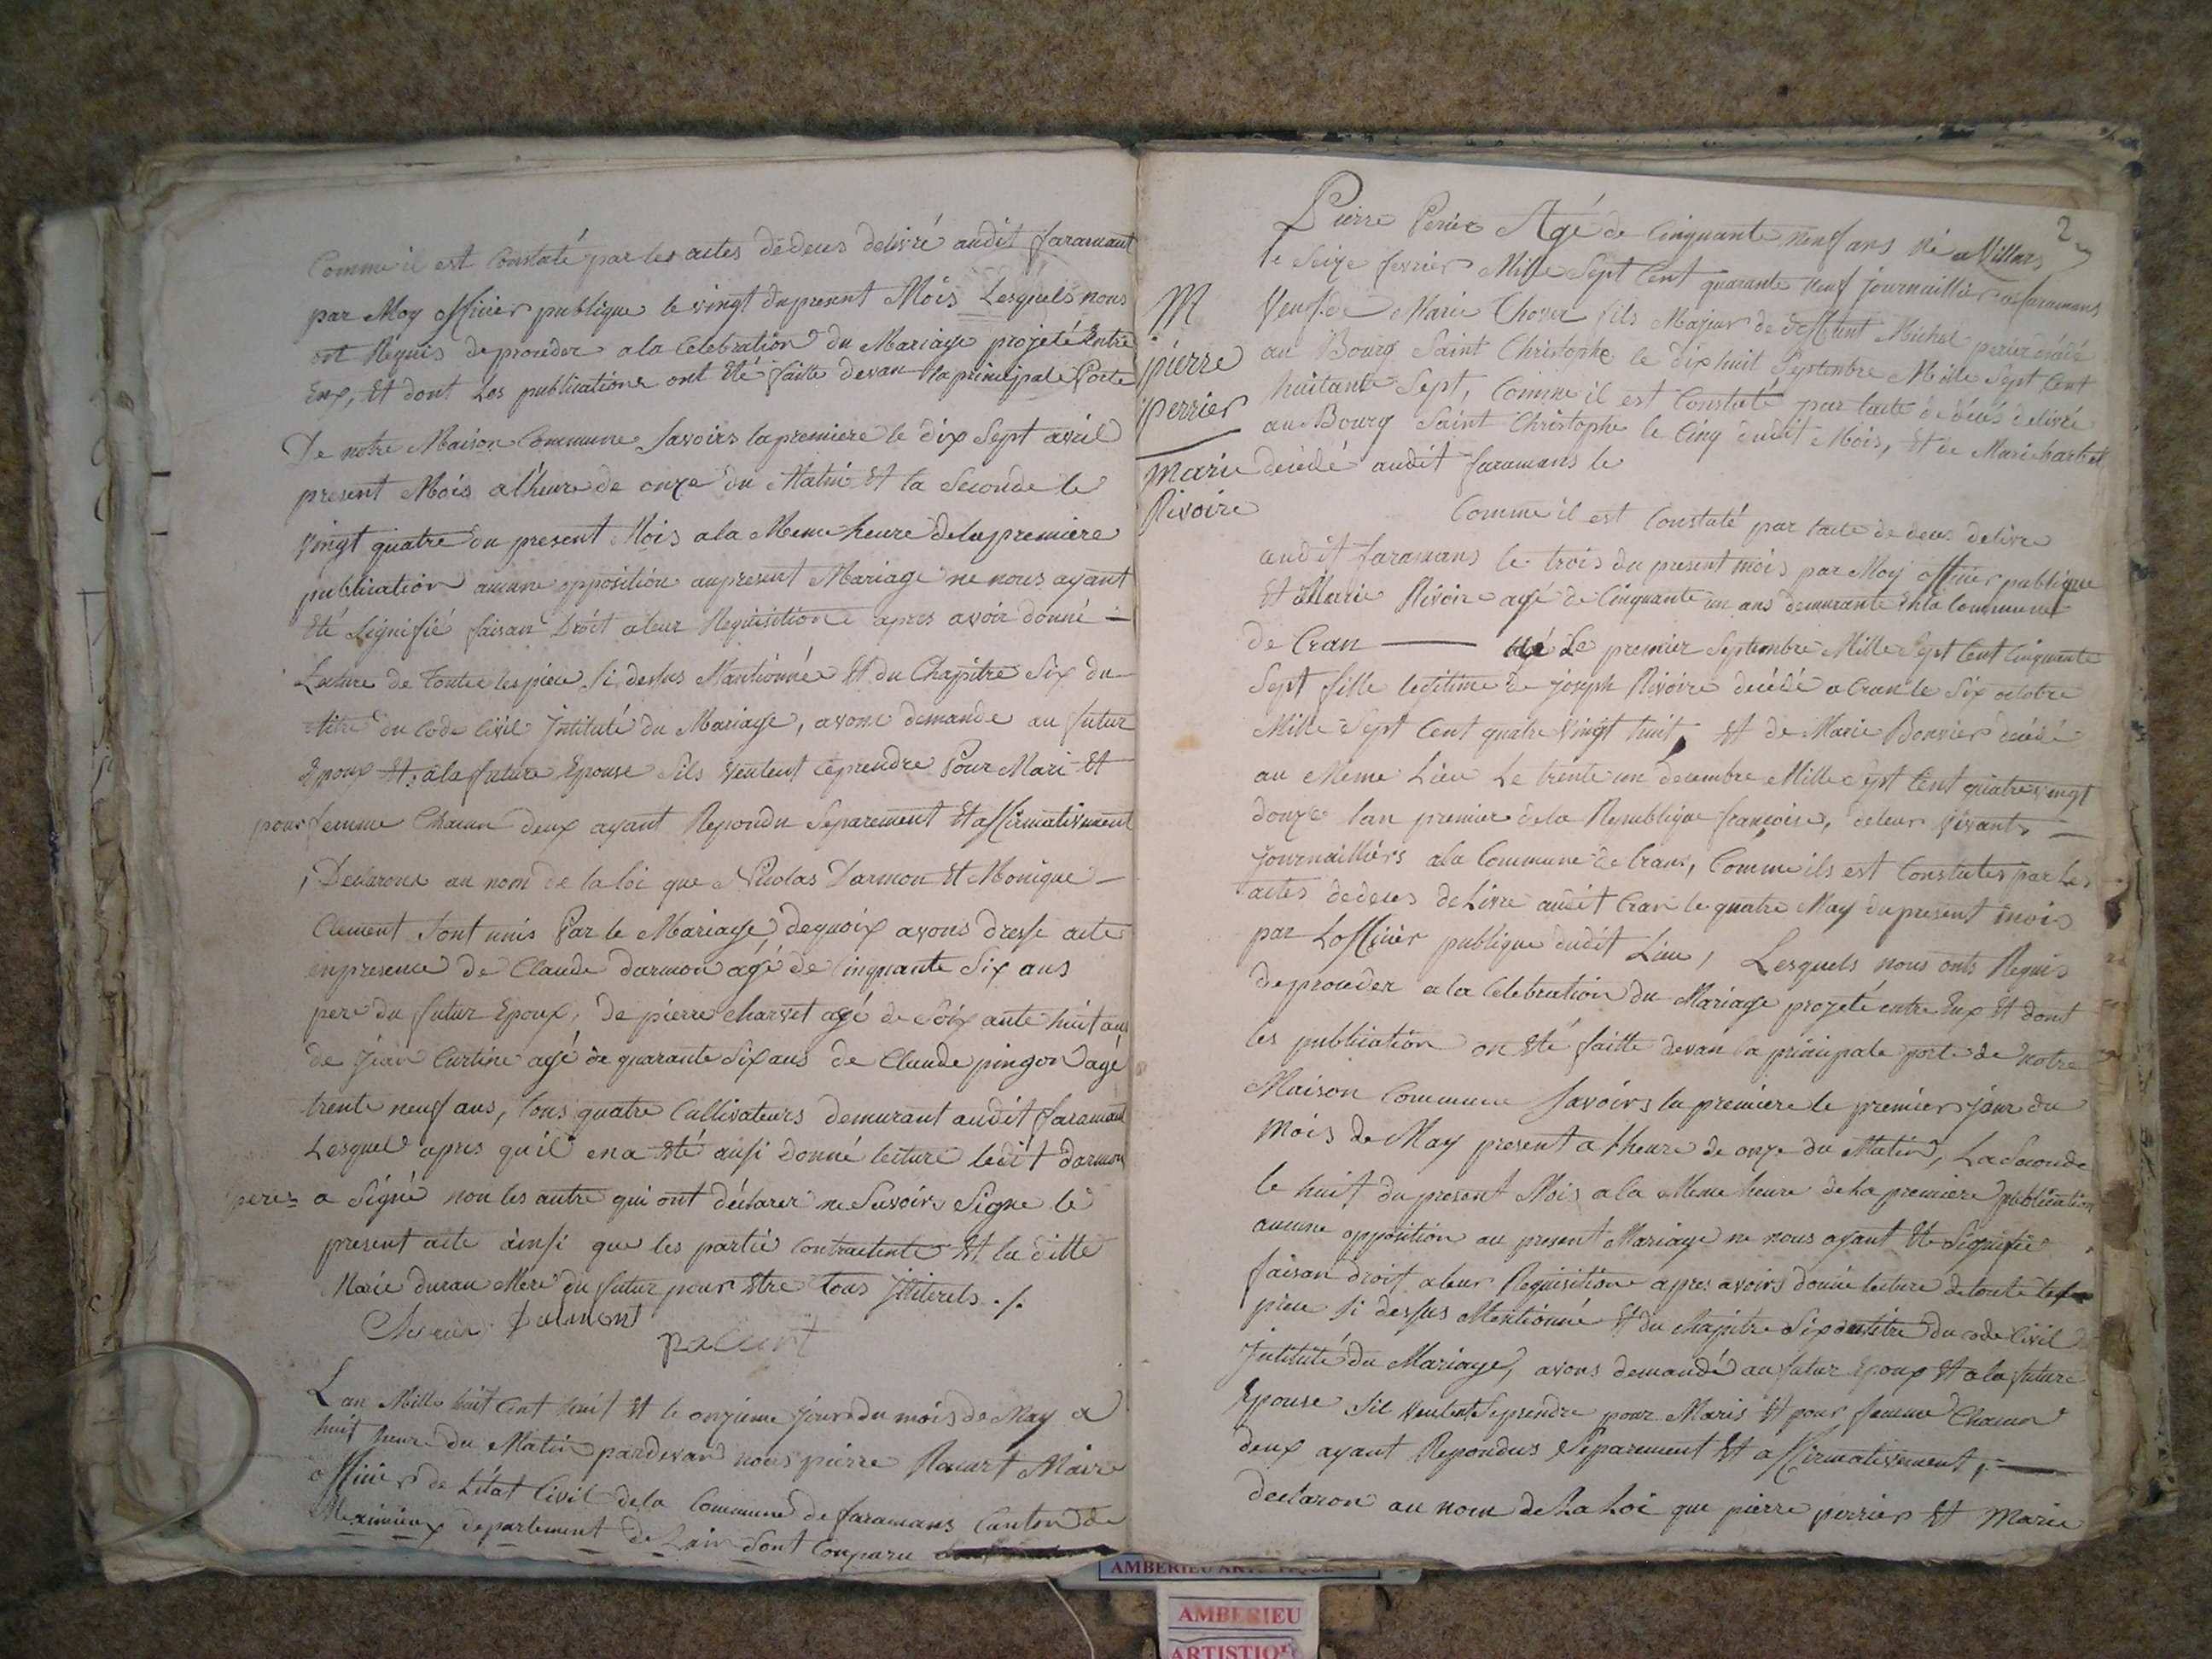 Comme il est Constaté par les actes dedeces delivré audit faramant
par Moy officier publique le vingt dupresent Mois Lesquels nous
ont Requis deproceder ala Celebration du Mariage projeté Entre
Eux, Et dont Les publications ont Eté faitte devan la principale Porte
De notre Maison Commune Savoirs lapremiere le dix Sept avril
present Mois alheure de onze du Matin Et la Seconde le
vingt quatre du present Mois ala Meme heure delapremiere
publication aucune opposition aupresent Mariage ne nous ayant
Eté Signifié faisan Droit aleur Requisition apres avoir donné
Lecture de Toutte les piece Si dessus Mantionné Et du Chapitre Six du
titre du Code Civil Intitulé du Mariage, avons demande au futur
Epoux Et ala future Epouse Sils veulent ceprendre Pour Mari Et
pour femme Chacun deux ayant Repondu Separement Et affirmativement
Declarons au nom de la loi que Nicolas Darmon Et Monique
Clement Sont unis Par le Mariage, dequoix avons dresse acte
enpresence de Claude darmon agé de Cinquante Six ans
pere du futur Epoux, de pierre charvet agé de Soixante huit ans
de Jean Curtine agé de quarante Six ans de Claude pingon agé
trente neuf ans, tous quatre Cultivateurs demurant audit faramant
Lesquel apres quil ena Eté ausi Donné lecture ledit darmon
pere a Signé non les autre qui ont déclarer ne Savoirs Signe le
present acte ainsi que les partie Contractente Et la ditte
Marie duran Mere du futur pour Etre tous Illiterels ./.
L an Mille huit Cent huit Et le onzieme jour du mois de May a
huit heure du Matin pardevan nous pierre Pacurt Maire
officier de Létat Civil dela Commune de faramans Canton de
Meximieux departement de Lain Sont Comparu
2
M
pierre
perrier
marie
Rivoire
Pierre Perier Agé de Cinquante neuf ans Né a Villars
le Seize fevrier Mille Sept Cent quarante neuf journaillier a faramans
Veuf de Marie Thover fils Majeur de deffeunt Michel perier décédé
au Bourg Saint Christophe le dix huit Septembre Mille Sept Cent
huitante Sept, Comme il est Constaté par lacte de déces delivré
au Bourg Saint Christophe le Cinq dudit Mois, Et de Marie barbet
decédé audit faramans le
Comme il est Constaté par lacte de deces delivre
audit faramans le trois du present mois par Moy officier publique
Et Marie Rivoire agé de Cinquante un ans demurante En la Commune
de Cran Né Le premier Septembre Mille Sept Cent Cinquante
Sept fille legitime de joseph Rivoire decédé a Cran le Six octobre
Mille Sept Cent quatre vingt huit Et de Marie Bonvier decédé
au Meme Lieu Le trente un decembre Mille Sept Cent quatre vingt
douze lan premier de la Republique françoise, deleur vivant
journailliers ala Commune de Crans, Comme ils est Constates par Les
actes dedeces deLivre audit Cran le quatre May dupresent mois
par Lofficier publique dudit Lieu, Lesquels nous onts Requis
deproceder ala Celebration du Mariage projeté entre Eux Et dont
les publication on Eté faitte devan la principale porte de notre
Maison Commune Savoirs la premiere le premier jour du
mois de May present a lheure de onze du Matin, La Seconde
le huit du present Mois ala Meme heure deLa premiere publication
aucune opposition au present Mariage ne nous ayant Eté Signifié
faisan droit aleur Requisition apres avoirs donné lecture detoute les
piece Si dessus Mentionné Et du chapitre Six du titre du code Civil
Intitulé du Mariage, avons demandé au futur Epoux Et ala future
Epouse Sil veulent Seprendre pour Maris Et pour femme Chacun
deux ayant Repondus Separement Et affirmativement,
declaron au nom de La Loi que pierre perrier Et Marie
AMBERIEU
AMBERIEU
ARTISTIQ